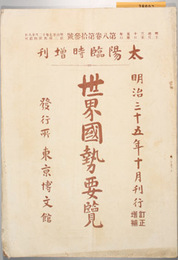 第八卷第拾參號
太陽臨時増刊
明治三十五年十月刊行
訂正
増補
世界國勢要覽
發行所 東京博文館